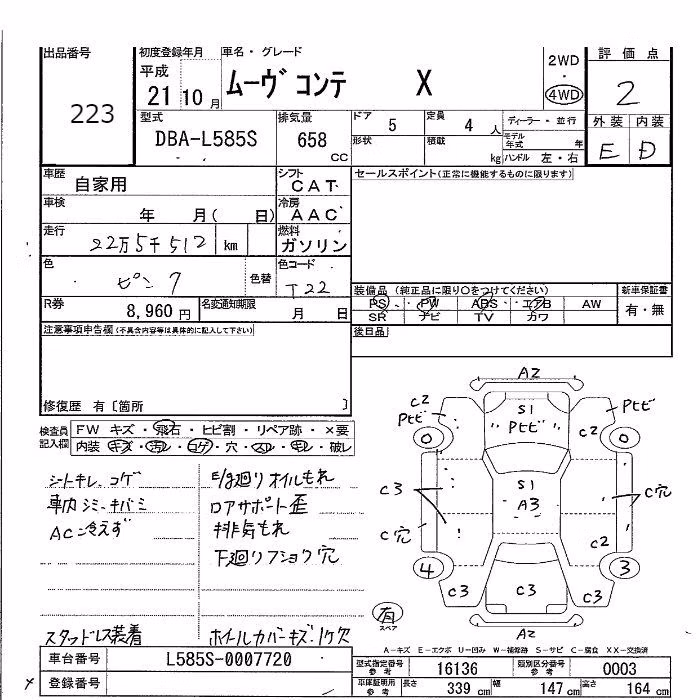 出品番号
223
初度登録年月
平成
21 10 月
車名・グレード
ムーヴ コンテ X
2WD
・
4WD
評価点
2
外装 内装
E D
型式
DBA-L585S
排気量
658
cc
ドア 5 定員 4 人
形状 積載 kg
ディーラー・並行
モデル年式 年
ハンドル 左・右
車歴
自家用
シフト
CAT
車検
年 月( 日)
冷房
AAC
走行
22万5千512 km
燃料
ガソリン
色
ピンク
色替
色コード
T22
R券
8,960 円
名変通知期限
月 日
セールスポイント(正常に機能するものに限ります)
装備品 (純正品に限り○をつけてください)
PS PW ABS エアB AW
SR ナビ TV カワ
新車保証書
有・無
後日品
注意事項申告欄(不具合内容等は具体的に記入して下さい)
修復歴 有〔箇所 〕
検査員記入欄
FW キズ・飛石・ヒビ割・リペア跡・×要
内装 キズ・汚レ・コゲ・穴・スレ・モレ・破レ
シートキレ、コゲ
車内シミ、キバミ
AC冷えず
スタッドレス装着
E/g廻りオイルもれ
ロアサポート歪
排気もれ
下廻りフショク穴
ホイルカバーキズ1ケ欠
A2
C2
Pトビ
S1
"Pトビ"
C2
Pトビ
0
0
C3
S1
A3
C穴
C穴
C2
4
3
C3
C3
C3
有
スペア
A2
A-キズ E-エクボ U-凹み W-補修跡 S-サビ C-腐食 XX-交換済
車台番号 L585S-0007720
登録番号
型式指定番号参考 16136 類別区分番号参考 0003
車庫証明用参考 長さ 339 cm 幅 147 cm 高さ 164 cm